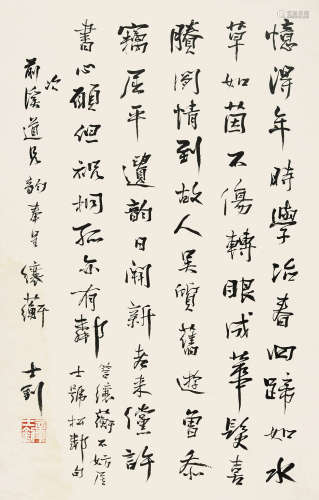 憶得年時學冶春四蹄如水
草如茵不傷轉眼成華髮喜
賸閒情到故人吳質舊遊曾忝
竊屈平遺韵日開新老來儻許
書心願但祝桐孤亦有鄰
登纕蘅不妨居
士號松鄰句
次
前溪道兄韵奉呈 纕蘅
士釗